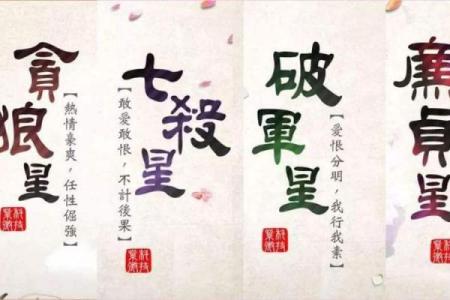 貪狼星
【熱情豪爽，任性倔強】
科技紫微
七殺星
【敢愛敢恨，不計後果】
科技紫微
破軍星
【愛恨分明，我行我素】
科技紫微
廉貞星
科技紫微